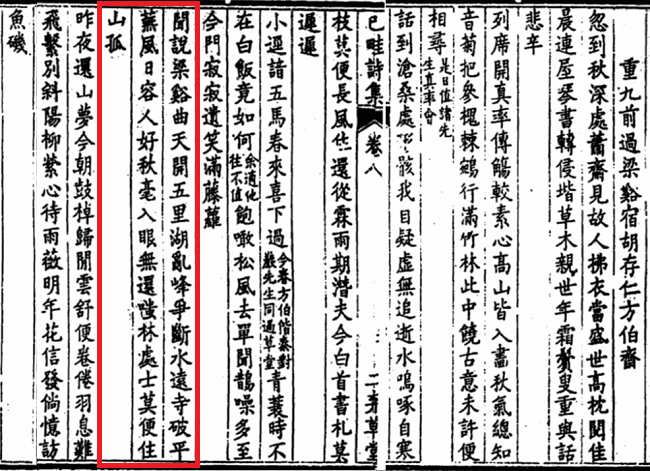 重九前過梁谿宿胡存仁方伯齋
忽到秋深處蕭齋見故人拂衣當盛世高枕閱佳
晨連屋琴書侵堦草木親世年霜鬢叟重與話
悲辛
列席開真率傳觴較素心高山皆入畵秋氣總知
音菊把參槐棘鵷行滿竹林此中饒古意未許便
相尋是日值諸先生真率會
話到滄桑處形骸我目疑虛無追逝水嗚啄自寒
巳畦詩集 卷八 二弃草堂
枝莫便長風還從霖雨期潛夫今白首書札莫
遲遲
小逕諳五馬春來喜下過今春方伯偕秦對巖先生同過草堂青蓑時不
在白飯竟如何余適他往不值飽噉松風去單聞鵲噪多至
今門寂寂遺笑滿藤蘿
聞說梁谿曲天開五里湖亂峰爭斷水遠寺破平
蕪風日容人好秋毫入眼無還嗤林處士莫便住
山孤
昨夜還山夢今朝鼓棹歸閒雲舒便卷倦羽息難
飛繫別斜陽柳縈心待雨薇明年花信發倘憶訪
魚磯